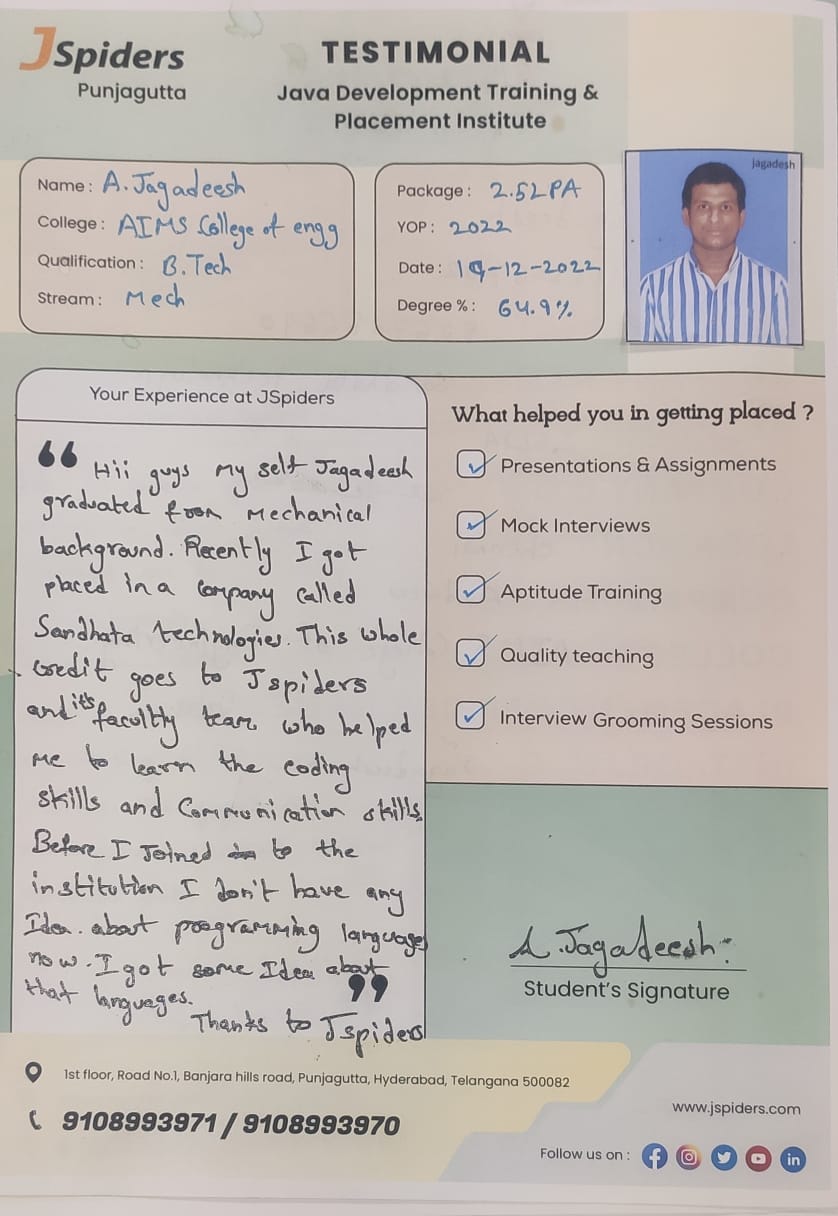 JSpiders
Punjagutta
TESTIMONIAL
Java Development Training &
Placement Institute
Name : A. Jagadeesh
College : AIMS College of engg
Qualification : B.Tech
Stream : Mech
Package : 2.5LPA
YOP : 2022
Date : 19-12-2022
Degree % : 64.9%
jagadesh
Your Experience at JSpiders
“ Hii guys my self Jagadeesh
graduated from Mechanical
background. Recently I got
placed in a company called
Sandhata technologies. This whole
credit goes to Jspiders
and it's facultly team who helped
me to learn the coding
skills and Communication skills.
Before I Joined to the
institution I don't have any
Idea. about programming languages
now. I got some Idea about
that languages. ”
Thanks to Jspiders
What helped you in getting placed ?
Presentations & Assignments
Mock Interviews
Aptitude Training
Quality teaching
Interview Grooming Sessions
A. Jagadeesh:
Student's Signature
1st floor, Road No.1, Banjara hills road, Punjagutta, Hyderabad, Telangana 500082
9108993971 / 9108993970
www.jspiders.com
Follow us on :